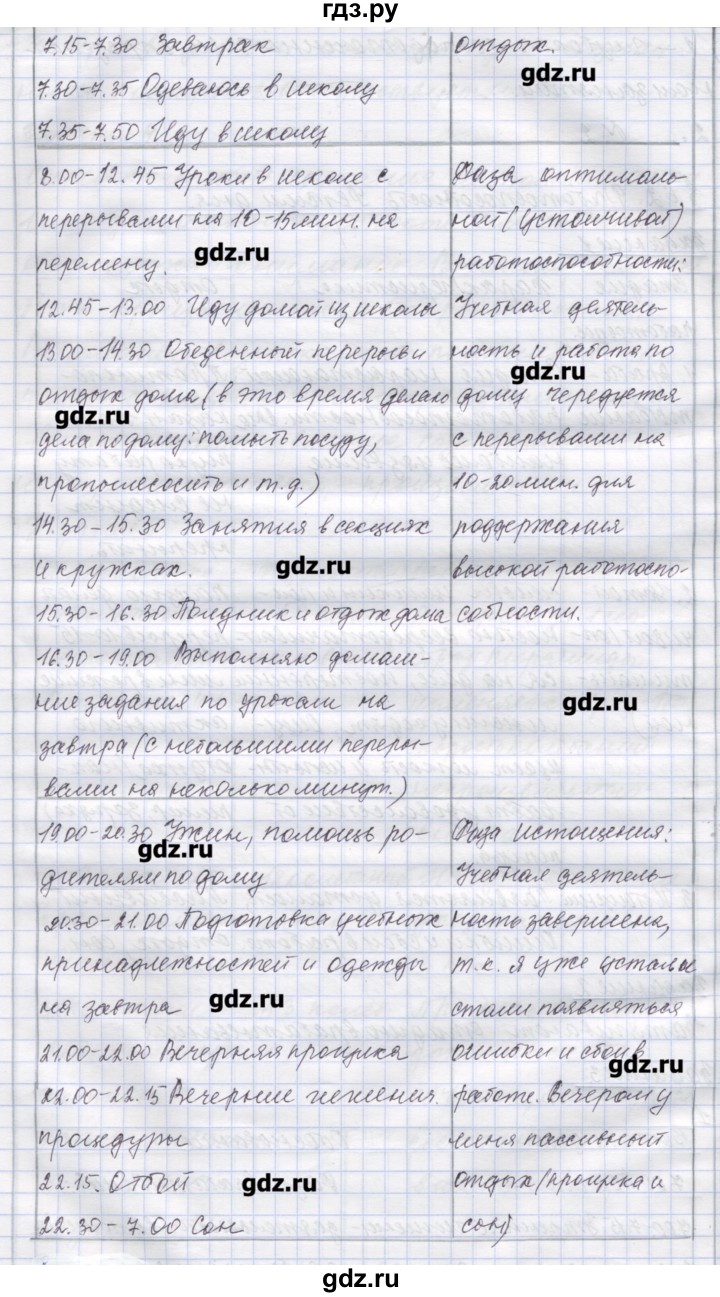 гдз.ру
7.15-7.30 Завтрак
7.30-7.35 Одеваюсь в школу
7.35-7.50 Иду в школу
отдых.
gdz.ru
8.00-12.45 Уроки в школе с
перерывами на 10-15 мин. на
перемену.
gdz.ru
12.45-13.00 Иду домой из школы
13.00-14.30 Обеденный перерыв и
отдых дома (в это время делаю
gdz.ru
дела по дому: помыть посуду,
пропылесосить и т.д.)
14.30-15.30 Занятия в секциях
и кружках.
gdz.ru
15.30-16.30 Полдник и отдых дома
16.30-19.00 Выполняю домаш-
ние задания по урокам на
завтра (с небольшими переры-
вами на несколько минут.)
Фаза оптималь-
ной (устойчивой)
работоспособности:
Учебная деятель-
ность и работа по
gdz.ru
дому чередуется
с перерывами на
10-20 мин. для
поддержания
высокой работоспо-
собности.
gdz.ru
19.00-20.30 Ужин, помощь ро-
gdz.ru
дителям по дому
20.30-21.00 Подготовка учебных
принадлежностей и одежды
на завтра
gdz.ru
21.00-22.00 Вечерняя прогулка
22.00-22.15 Вечерние гигиенич.
процедуры
22.15. Отбой
gdz.ru
22.30-7.00 Сон
Фаза истощения:
Учебная деятель-
ность завершена,
т.к. я уже устал и
стали появляться
ошибки и сбои в
gdz.ru
работе. Вечером у
меня пассивный
отдых (прогулка и
сон)
gdz.ru